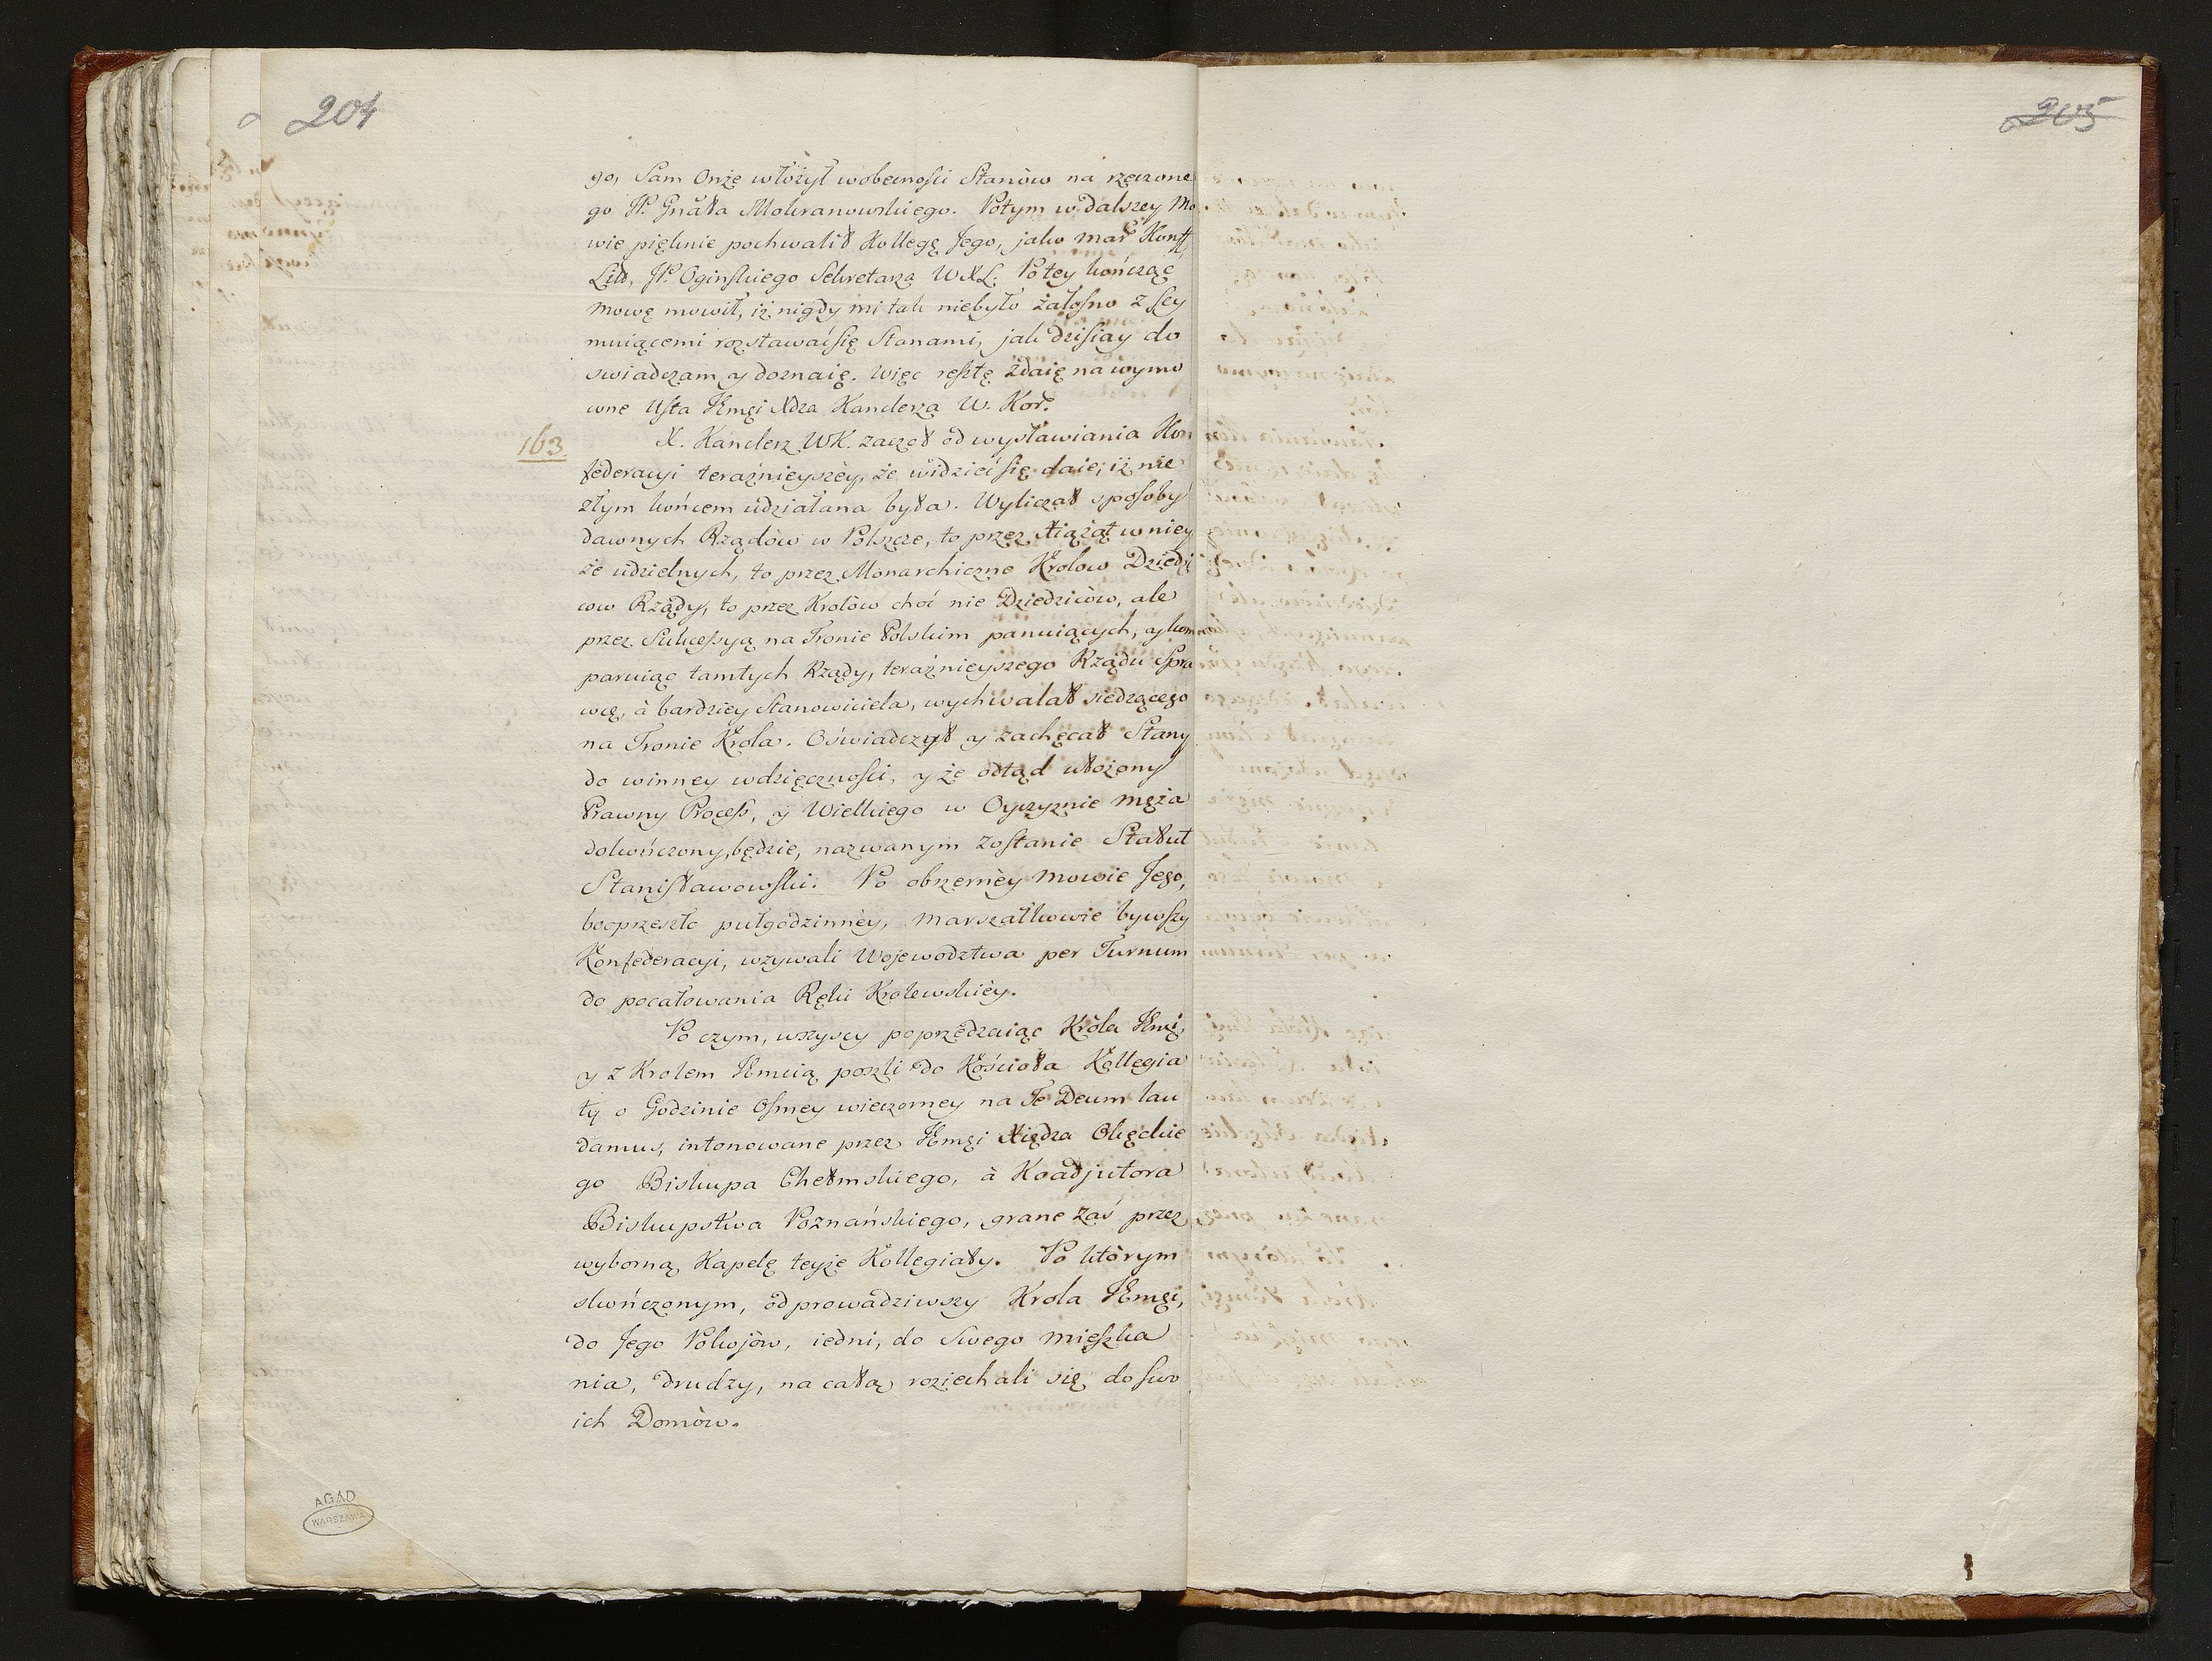 204
205
go, Sam Onże włożył wobecności Stanòw na rzeczone
go JP. Gnała Mokranowskiego. Potym w dalszey Mo
wie pięknie pochwalił Kollegę Jego, jako Mar. Konff.
Litt, JP. Oginskiego Sekretarza WXL. Po tey kończąc
mowę mowił, iż nigdy mi tak niebyło żałosno z Sey
muiącemi rozstawać się Stanami, jak dzisiay do
swiadczam y doznaię. Więc resztę zdaię na wymo
wne Usta JEmći Xdza Kanclerza W. Kor.
163. X. Kanclerz WK. zaczął od wysławiania Kon
federacyi teraźnieyszèy, że widzieć się daie, iż nie
złym końcem udziałana była. Wyliczał sposoby
dawnych Rządòw w Polszcze, to przez Xiążąt w niey
że udzielnych, to przez Monarchiczne Krolow Dziedzi
cow Rządy, to przez Krolòw choć nie Dziedzicòw, ale
przez Sukcessyą na Tronie Polskim panuiących, a kom
paruiąc tamtych Rządy, teraźnieyszego Rządu Spra
wcę, à bardziey Stanowiciela, wychwalał siedzącego
na Tronie Krola. Oświadczył y zachęcał Stany
do winney wdzięczności, y że odtąd ułożony
Prawny Process, y Wielkiego w Oyczyznie męża
dokończony, będzie, nazwanym zostanie Statut
Stanisławowski. Po obszernèy Mowie Jego,
bo oprzeszło pułgodzinnèy, Marszałkowie bywszy
Konfederacyi, wzywali Wojewodztwa per Turnum
do pocałowania Ręki Krolewskièy.
Po czym, wszyscy poprzedzaiąc Kròla JEmći,
y z Krolem JEmcią poszli do Kościoła Kollegia
ty o Godzinie Osmey wieczorney na Te Deum lau
damus, intonowane przez JEmći Xiędza Okęckie
go Biskupa Chełmskiego, à Koadjutora
Biskupstwa Poznańskiego, grane zaś przez
wyborną Kapelę teyże Kollegiaty. Po ktòrym
skończonym, odprowadziwszy Krola JEmći,
do Jego Pokojòw, iedni, do Swego mieszka
nia, drudzy, na całą roziechali się do swo
ich Domòw.
AGAD
WARSZAWA